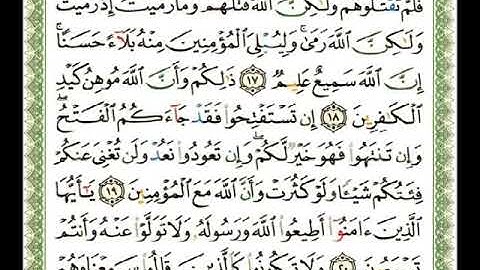 فَلَمْ تَقْتُلُوهُمْ وَلَٰكِنَّ ٱللَّهَ قَتَلَهُمْ ۚ وَمَا رَمَيْتَ إِذْ رَمَيْتَ
وَلَٰكِنَّ ٱللَّهَ رَمَىٰ ۚ وَلِيُبْلِىَ ٱلْمُؤْمِنِينَ مِنْهُ بَلَآءً حَسَنًا ۚ
إِنَّ ٱللَّهَ سَمِيعٌ عَلِيمٌ ١٧ ذَٰلِكُمْ وَأَنَّ ٱللَّهَ مُوهِنُ كَيْدِ
ٱلْكَٰفِرِينَ ١٨ إِن تَسْتَفْتِحُوا۟ فَقَدْ جَآءَكُمُ ٱلْفَتْحُ ۖ
وَإِن تَنتَهُوا۟ فَهُوَ خَيْرٌ لَّكُمْ ۖ وَإِن تَعُودُوا۟ نَعُدْ وَلَن تُغْنِىَ عَنكُمْ
فِئَتُكُمْ شَيْـًٔا وَلَوْ كَثُرَتْ وَأَنَّ ٱللَّهَ مَعَ ٱلْمُؤْمِنِينَ ١٩ يَٰٓأَيُّهَا
ٱلَّذِينَ ءَامَنُوٓا۟ أَطِيعُوا۟ ٱللَّهَ وَرَسُولَهُۥ وَلَا تَوَلَّوْا۟ عَنْهُ وَأَنتُمْ
تَسْمَعُونَ ٢٠ وَلَا تَكُونُوا۟ كَٱلَّذِينَ قَالُوا۟ سَمِعْنَا وَهُمْ